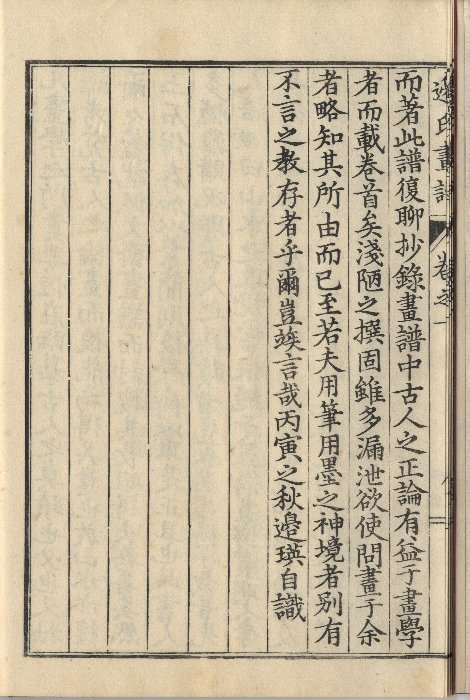 邉氏畫譜 卷之一
而著此譜復聊抄錄畫譜中古人之正論有益于畫學
者而載卷首矣淺陋之撰固雖多漏泄欲使問畫于余
者略知其所由而已至若夫用筆用墨之神境者别有
不言之教存者乎爾豈竢言哉丙寅之秋邉瑛自識